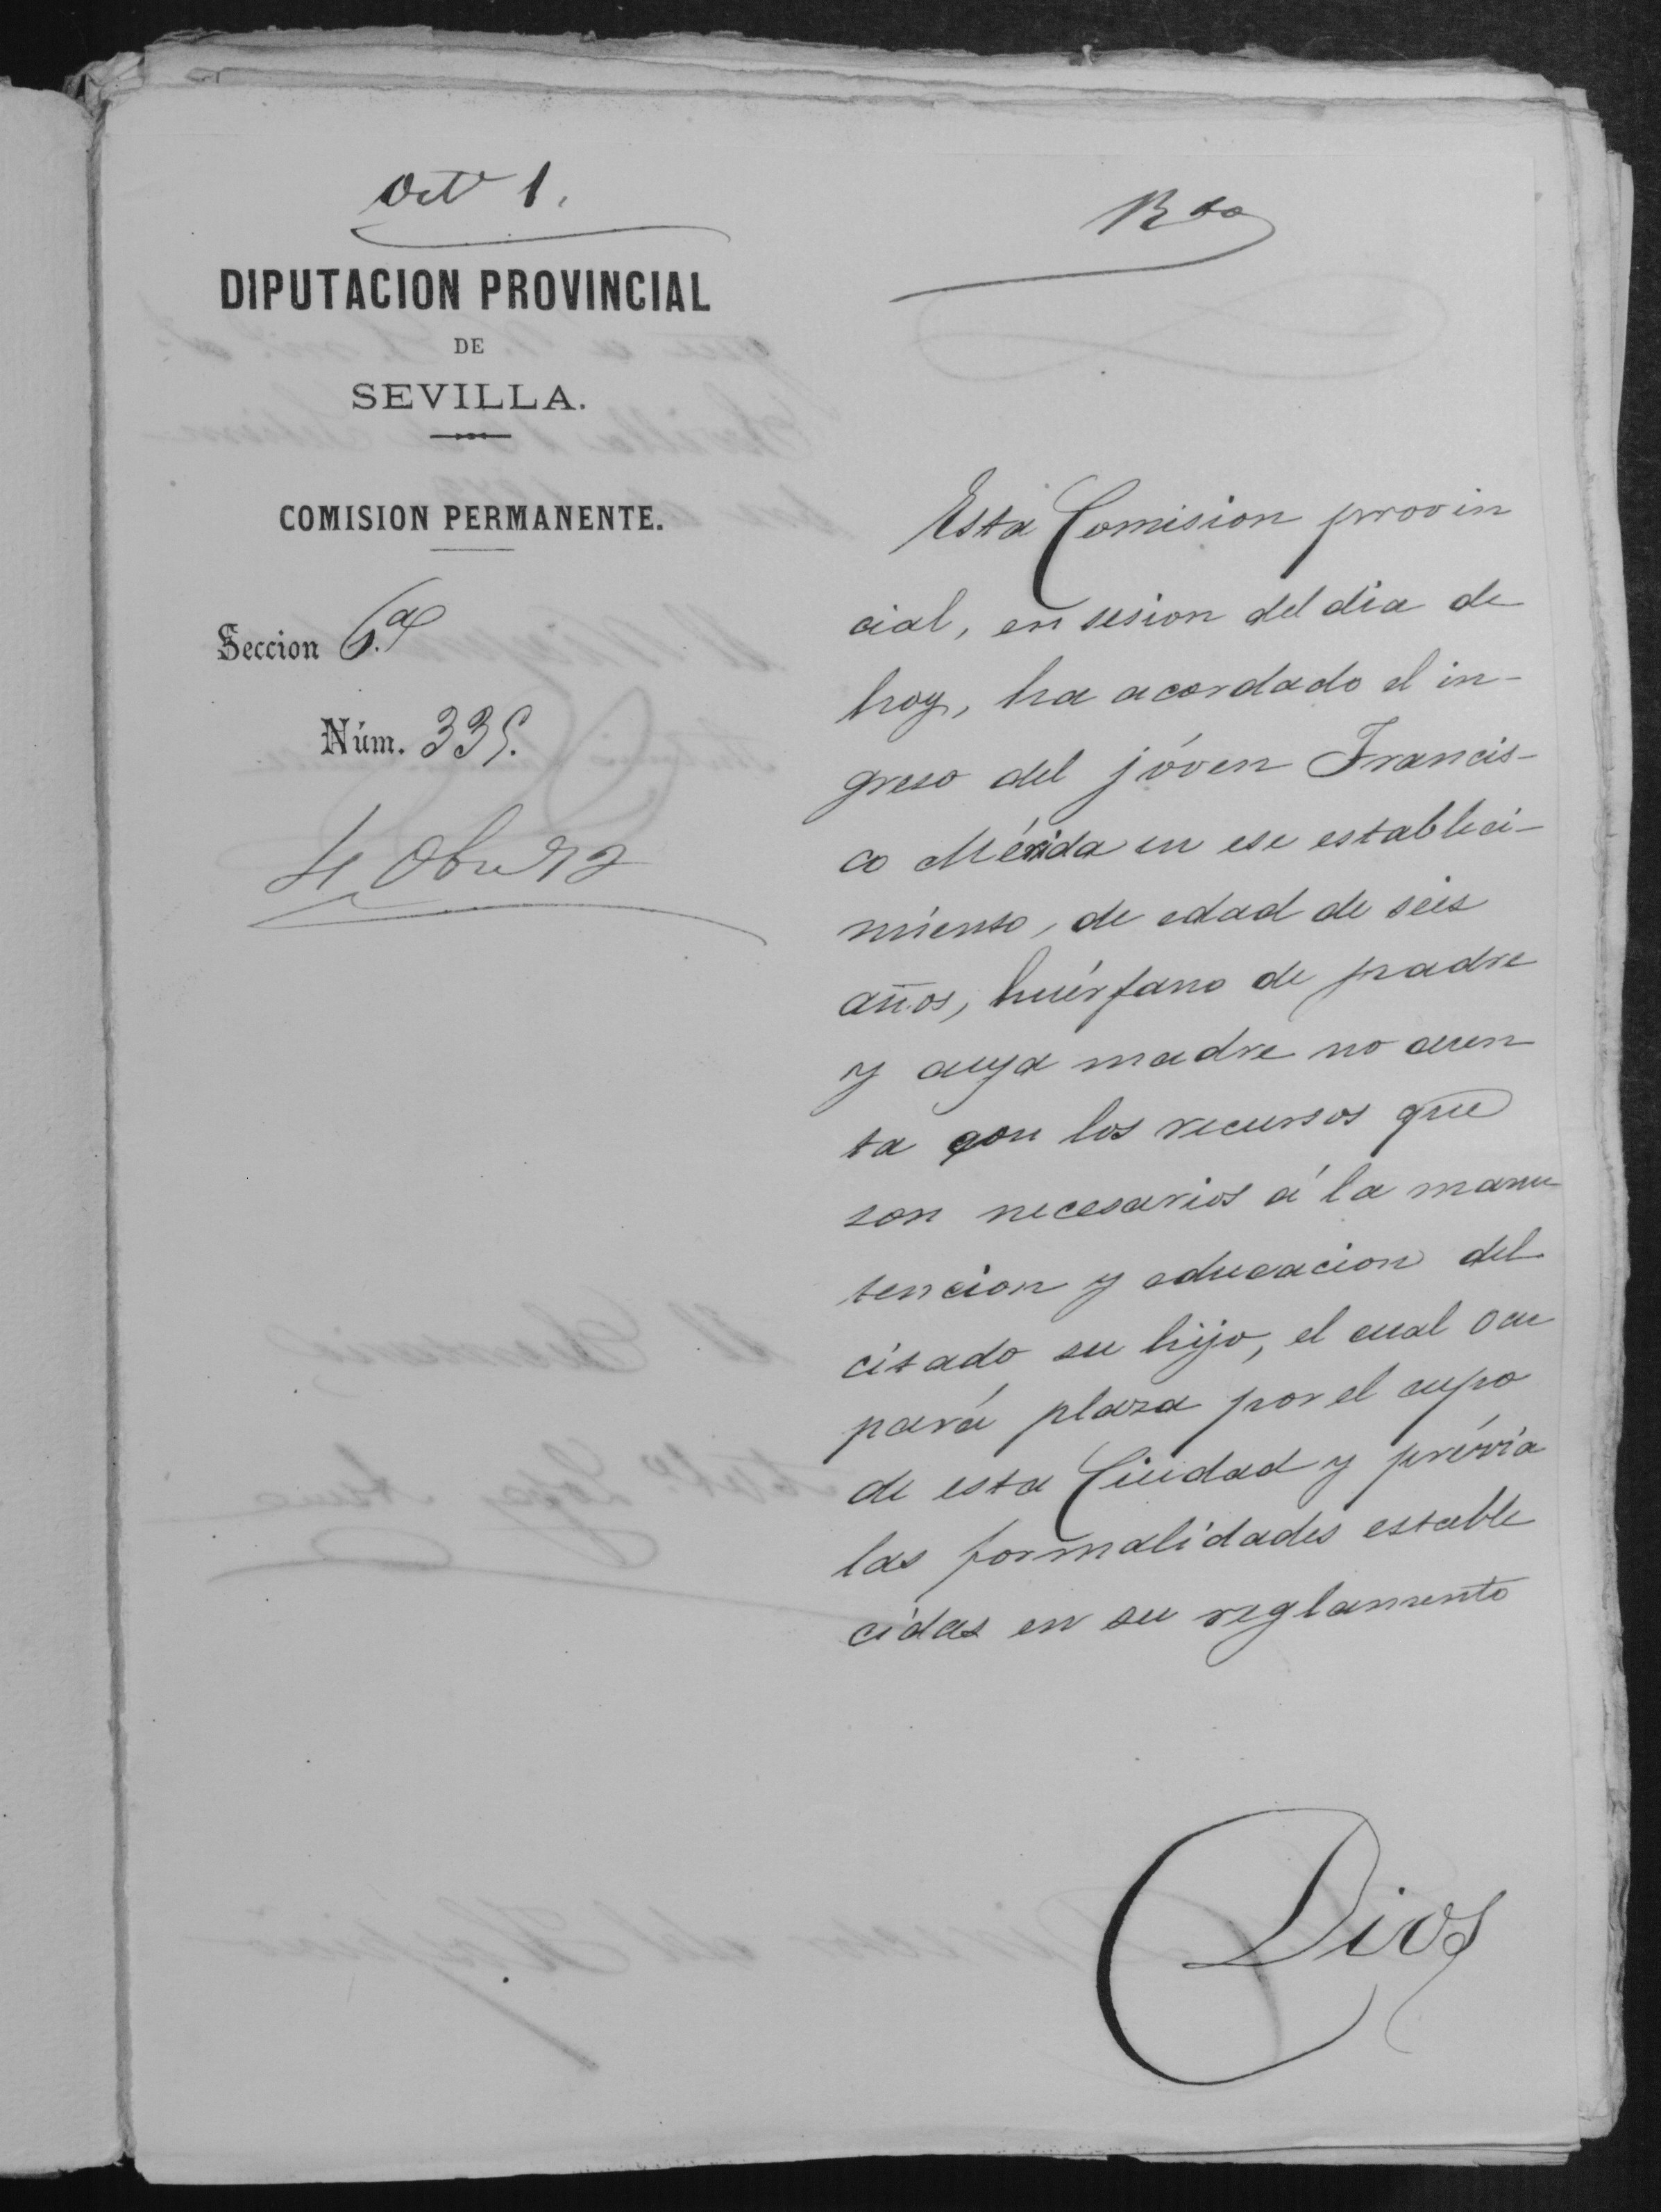 Octe 1.
Rdo
DIPUTACION PROVINCIAL
DE
SEVILLA.
COMISION PERMANENTE.
Seccion 6.a
Núm. 335.
4 Obre 72
Esta Comision provin
cial, en sesion del dia de
hoy, ha acordado el in-
greso del jóven Francis-
co Mérida en ese estableci-
miento, de edad de seis
años, huérfano de padre
y cuya madre no cuen
ta con los recursos que
son necesarios á la manu
tencion y educacion del
citado su hijo, el cual ocu
pará plaza por el cupo
de esta Ciudad y prévia
las formalidades estable
cidas en su reglamento
Dios